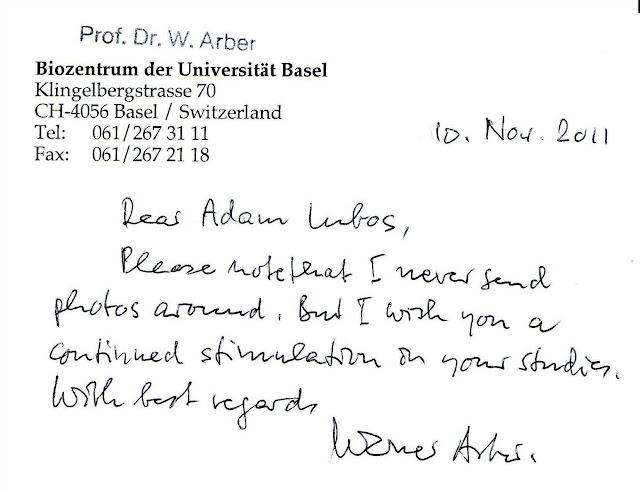 Prof. Dr. W. Arber
Biozentrum der Universität Basel
Klingelbergstrasse 70
CH-4056 Basel / Switzerland
Tel: 061/267 31 11
Fax: 061/267 21 18
10. Nov. 2011
Dear Adam Lubos,
Please note that I never send
photos around. But I wish you a
continued stimulation in your studies.
With best regards
Werner Arber.